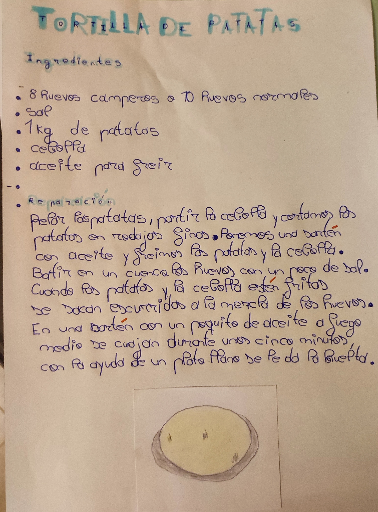 TORTILLA DE PATATAS
Ingredientes
• 8 Huevos camperos o 10 Huevos normales
• sal
• 1 kg de patatas
• cebolla
• aceite para freir
-•
• Preparación
Pelar las patatas, partir la cebolla y cortamos las
patatas en rodajas finas. Ponemos una sartén
con aceite y freimos las patatas y la cebolla.
Batir en un cuenco los Huevos con un poco de sal.
Cuando las patatas y la cebolla estén fritas
se sacan escurridas a la mezcla de los Huevos.
En una sartén con un poquito de aceite a fuego
medio se cuajan durante unos cinco minutos,
con la ayuda de un plato llano se le da la vuelta.